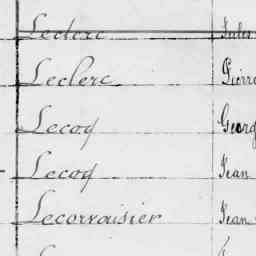 Leclerc Jules
Leclerc Pierre
Lecoq Georg
Lecoq Jean
Lecorvaisier Jean